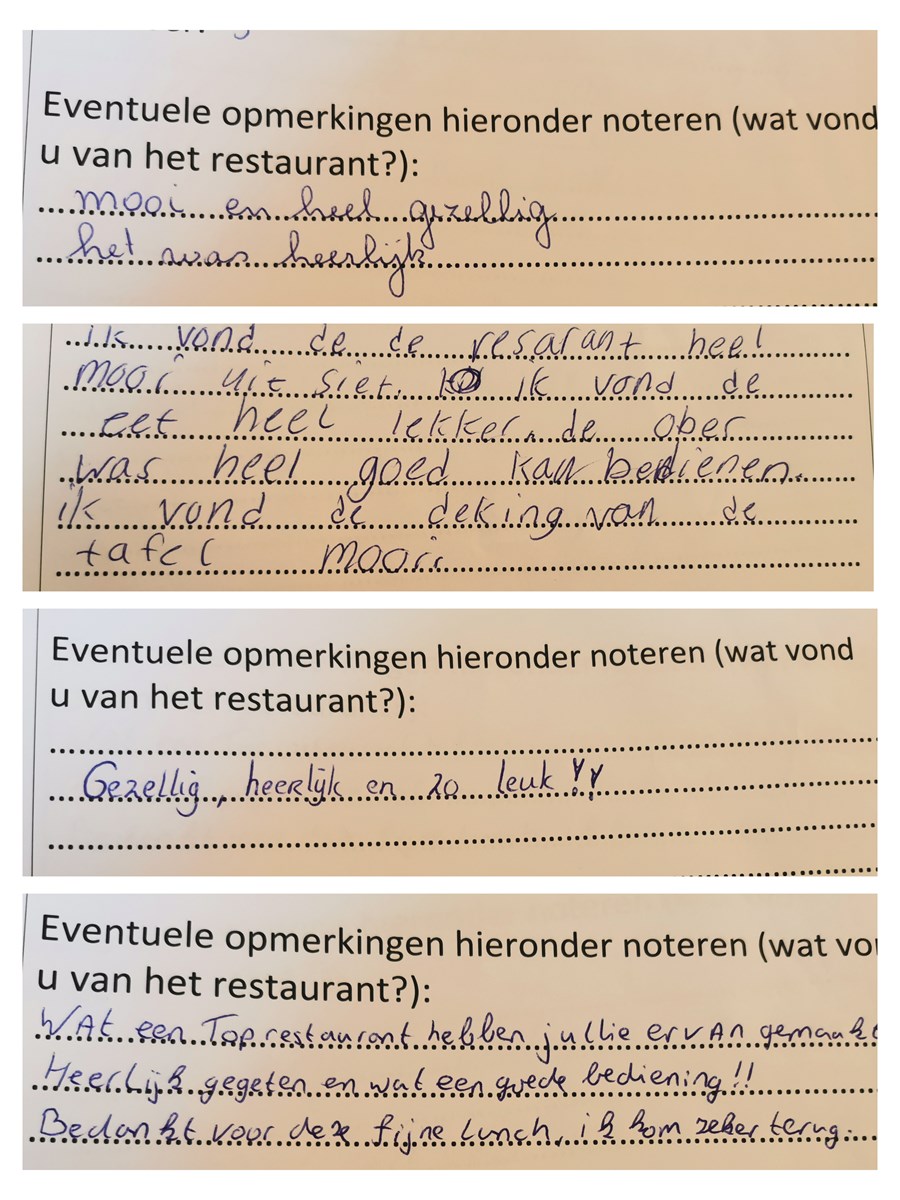 Eventuele opmerkingen hieronder noteren (wat vond
u van het restaurant?):
mooi en heel gezellig
het was heerlijk
ik vond de de resarant heel
mooi uit siet. ik vond de
eet heel lekker. de ober
was heel goed kan bedienen.
ik vond de deking van de
tafel mooi
Eventuele opmerkingen hieronder noteren (wat vond
u van het restaurant?):
Gezellig, heerlijk en zo leuk!!
Eventuele opmerkingen hieronder noteren (wat vo
u van het restaurant?):
WAt een Top restaurant hebben jullie ervAn gemaakt
Heerlijk gegeten en wat een goede bediening!!
Bedankt voor deze fijne lunch, ik kom zeker terug.